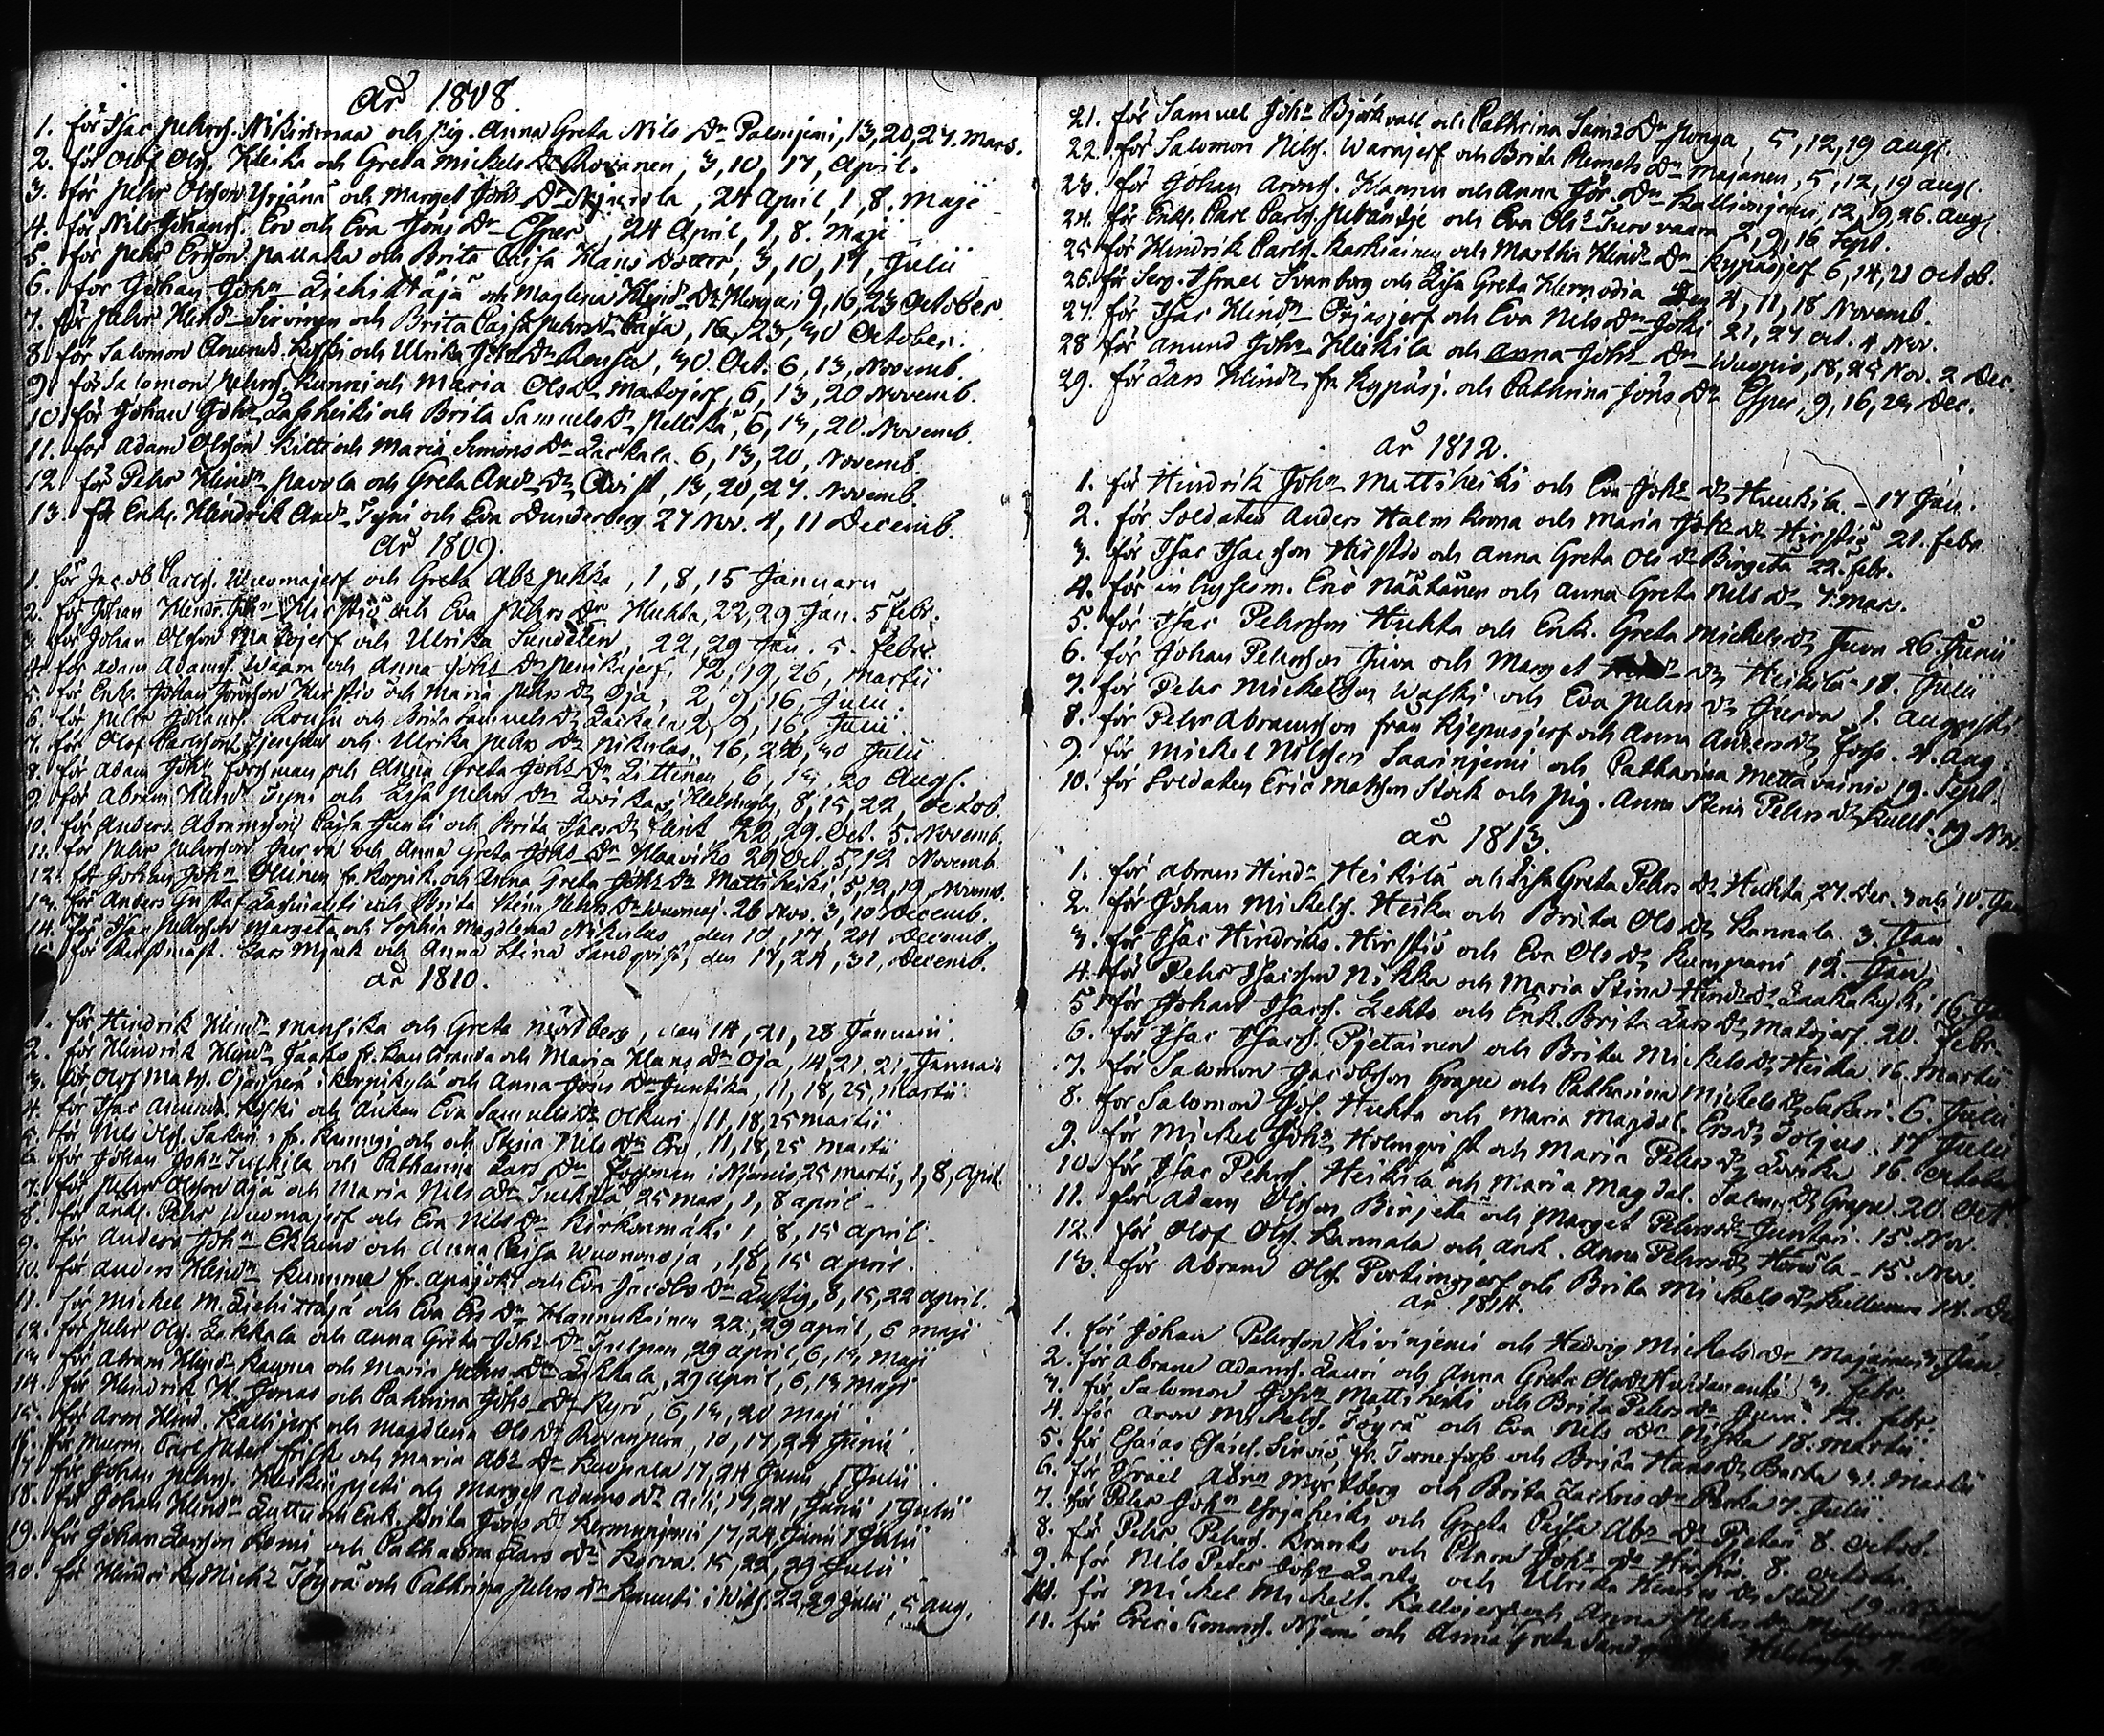 år 1808.
1. för Isac Pehrs. Nikinmaa och pig. Anna Greta Nils Dr Palonjemi, 13, 20, 27. Mars.
2. för Olof Ols. Heika och Greta Mickels Dr Rovanen, 3, 10, 17, April.
3. för Pehr Olsson Yrjänä och Marget Johs Dr 24 April, 1, 8. Maji
4. för Nils Johans. Ero och Eva Jöns Dr Esper, 24 April, 1, 8. Maji
5. för Pehr Ersson Pallaka och Brita Cajsa Hans Dotter, 3, 10, 17, Julii
6. för Johan Johns Liehittäjä och Maglena Hind. Dr 9, 16, 23 October.
7. för Pehr Hind. Sirvinen och Brita Cajsa Pehrs Dr Cajsa, 16, 23, 30 October.
8. för Salomon Amunds. Koski och Ulrika Johs Dr Rousa, 30. Oct. 6, 13, Novemb.
9. för Salomon Pehrs. Kunnri och Maria Ols Dr Matojerf, 6, 13, 20 Novemb.
10. för Johan Johs Lassheiki och Brita Samuels Dr Pellikä, 6, 13, 20. Novemb.
11. för Adam Olsson Kitti och Maria Simons Dr Lackala. 6, 13, 20, Novemb.
12. för Pehr Hindr Pavola och Greta And. Dr Qvist, 13, 20, 27. Novemb.
13. för Enkl. Hindrik And. Tyni och Eva Dunderberg 27 Nov. 4, 11 Decemb.
år 1809.
1. för Jacob Carls. Wuomajerf och Greta Abr Pekka, 1, 8, 15 Januarii
2. för Johan Hindr. Hirstiö och Eva Pehrs Dr Huhta, 22, 29 Jan. 5 Febr.
3. för Johan Olsson Matojerf och Ulrika Sundelin, 22, 29 Jan. 5. Febr.
4. för Adam Adams. Waara och Anna Johs Dr Penikäjerf, 12, 19, 26, Martii
5. för Enkl. Johan Hirstiö och Maria Pehrs Dr Oja, 2, 9, 16, Julii.
6. för Pehr Johans. Rousu och Brita Samuels Dr Lackala 2, 9, 16, Julii.
7. för Olof Carlsson och Ulrika Pehrs Dr Nikulas, 16, 23, 30 Julii
8. för Adam Johs Forsman och Anna Greta Johs Dr Littinen, 6, 13, 20 Augs.
9. för Abram Hind. Tyni och Lisa Pehrs Dr 8, 15, 22, Octob.
10. för Anders Abramsson Cajsa Junti och Brita Isacs Dr Flink 22, 29. Oct. 5. Novemb.
11. för Pehr Pehrsson Jurva och Anna Greta Johs Dr Haaviko 29 Oct. 5, 12 Novemb.
12. för Johan Johs Ollinen fr. Korpik. och Anna Greta Johs Dr Mattiheiki, 5, 12, 19, Novemb.
13. för Anders Gustaf och Brita Stina Pehrs Dr Wuomaj. 26 Nov. 3, 10 Decemb.
14. för Isac Pehrsson Margeta och Sophia Magdlena Nikulas, den 10, 17, 24 Decemb.
15. för Lars Mjuk och Anna Stina Sandqvist, den 17, 24, 31, Decemb.
år 1810.
1. för Hindrik Hind. Mansika och Greta Nordberg, den 14, 21, 28 Januarii.
2. för Hindrik Hind. Jaako fr. och Maria Hans Dr Oja, 14, 21, 21, Januarii
3. för Olof Mats. Ojasperä i Korpikylä och Anna Jöns Dr Juntika, 11, 18, 25, Martii
4. för Isac Amunds. Koski och Änkan Eva Samuels Dr Olkuri 11, 18, 25 Martii
5. för Nils Ols. Sakari fr. och Stina Nils Dr Ero, 11, 18, 25 Martii
6. för Johan Johs Tuskila och Catharina Lars Dr i Njemis, 25 Martii, 1, 8, April.
7. för Pehr Olsson Äijä och Maria Nils Dr Tuskila 25 Mars, 1, 8 April
8. för Enkl. Pehr Wuomajerf och Eva Nils Dr Kirkonmäki 1, 8, 15 April.
9. för Anders Johs Eklund och Anna Cajsa Wuononoja, 1, 8, 15 April.
10. för Anders Hindr Kumma fr. och Eva Jacobs Dr Lustig, 8, 15, 22 April.
11. för Mickel M. Liehittäjä och Eva Ers Dr Hannukainen 22, 29 April, 6 Maji
12. för Pehr Ols. Lakkala och Anna Greta Johs Dr Tulpan, 29 April, 6, 13, Maji
13. för Abram Hind. Rauma och Maria Pehrs Dr Lakkala, 29 April, 6, 13 Maji
14. för Hindrik H. Jonas och Cathrina Johs Dr Kyrö, 6, 13, 20 Maji
15. för Aron Hind. Kallijerf och Magdlena Ols Dr Rovanpera, 10, 17, 24 Junii.
16. för Murm. Carl Peter Frisk och Maria Abr. Dr Kuopala 17, 24 Junii, 1 Julii
17. för Johan Pehrs. och Marget Adams Dr Aili, 17, 24, Junii 1 Julii
18. för Johan Hindr Luttu och Enk. Brita Jöns Dr 17, 24, Junii 1 Julii
19. för Johan Larsson Komi och Catharina Lars Dr Karva. 15, 22, 29 Julii
20. för Hindrik Mickl Töyrä och Cathrina Pehrs Dr i Witt. 22, 29 Julii, 5 Aug.
21. för Samuel Johs Björkvall och Cathrina Saml Dr Ponga, 5, 12, 19 Augs.
22. för Salomon Nils. Warajerf och Brita Clemets Dr Majanen, 5, 12, 19 Augs.
23. för Johan Arons. Hannu och Anna Jör. Dr Kallionjemi, 12, 19, 26. Augs.
24. för Enkl. Carl Carls. och Eva Ols Turovaara 2, 9, 16 Sept.
25. för Hindrik Carls. Karkiainen och Martha Hind. Dr Kypäsjerf 6, 14, 21 Octob.
26. för Serg. Israel Svanborg och Lisa Greta Hermodia Den 4, 11, 18 Novemb.
27. för Isac Hindr Erjasjerf och Eva Nils Dr Joki 21, 27 Oct. 4 Nov.
28. för Amund Johs Heikila och Anna Johs Dr Wuopio, 18, 25 Nov. 2 Dec.
29. för Lars Hindr fr. Kypäsj. och Cathrina Jöns Dr Esper, 9, 16, 23 Dec.
år 1812.
1. för Hindrik Johs Mattiheiki och Eva Johs Dr Haukila. - 17 Jan.
2. för Soldaten Anders Halm Kona och Maria Johs Dr Hirstiö 21. Febr.
3. för Isac Isacsson Hirstiö och Anna Greta Ols Dr Birgeta 22. Febr.
4. för inhysesm. Eric Näätänen och Anna Greta Nils Dr 7. Mars.
5. för Isac Pehrsson Huhta och Enk. Greta Mickels Dr Juva 26. Junii
6. för Johan Pehrsson Juva och Marget Dr Heikilä 18. Julii
7. för Pehr Mickelson Waski och Eva Pehrs Dr Jurva 1. Augusti
8. för Pehr Abramsson från Kjepusjerf och Anna Anders Dr Forss. 2. Aug.
9. för Mickel Nilsson Saarinjemi och Catharina Mettävainio 19. Sept.
10. för Soldaten Eric Matsson Stock och pig. Anna Stina Pehrs Dr 19 Nov.
år 1813.
1. för Abram Hindr Heikilä och Lisa Greta Pehrs Dr Huhta, 27. Dec. 3 och 10. Jan
2. för Johan Mickels. Heika och Brita Ols Dr Kannala 3. Jan.
3. för Isac Hindriks. Hirstiö och Eva Ols Dr Kumpani 12. Jan.
4. för Pehr Isacsson Nikka och Maria Stina Hind. Dr Laakakoski 16 Jan
5. för Johan Isacs. Lehto och Enk. Brita Lars Dr Matojerf. 20. Febr.
6. för Isac Isacs. Pjetäinen och Brita Mickels Dr Heika. 16. Martii
7. för Salomon Jacobsson Grape och Catharina Mickels Dr Sakari. 6. Julii
8. för Salomon Jos. Huhta och Maria Magdal. Ers Dr Toljus. 17 Julii
9. för Mickel Johs Holmqvist och Maria Pehrs Dr Lovika 16. October
10. för Isac Pehrs. Heikila och Maria Magdal. Salom. Dr Grape. 20. Oct.
11. för Adam Olsson Birjetä och Marget Pehrs Dr Juntari. 15. Nov.
12. för Olof Ols. Kannala och Enk. Anna Pehrs Dr - 15. Nov.
13. för Abram Ols. Portimojerf och Brita Mickels Dr 14. De
år 1814.
1. för Johan Pehrsson Kivinjemi och Hedvig Mickels Dr Majainen 3. Jan.
2. för Abram Adams. Lauri och Anna Greta Ols Dr 3. Febr.
3. för Salomon Johs Mattiheiki och Brita Pehrs Dr Juva. 12. Febr.
4. för Aron Mickels. Töyrä och Eva Nils Dr Niska 18. Martii
5. för Esaias Esaies. Sirviö, fr. Torneforss och Brita Hans Dr Barka 31. Martii
6. för Israel Abr Mortberg och Brita Zachris Dr Perka 7 Julii.
7. för Pehr Johs Yrjäheiki och Greta Cajsa Abr. Dr Pjetari 8. Octob.
8. för Pehr Pehrs. Krankka och Clara Johs Dr Hirstiö. 8. October
9. för Nils Peter Johs och Ulrika Hindr Dr Stål 19.
10. för Mickel Mickels. Kallojerf och Anna Pehrs Dr
11. för Eric Njemi och Anna Greta Helsingby.